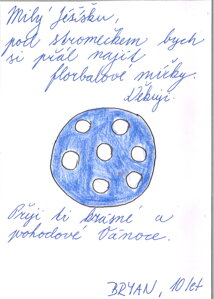 Milý Ježíšku,
pod stromečkem bych
si přál najít
florbalové míčky.
Děkuji.
Přeji ti krásné a
pohodové Vánoce.
BRYAN, 10 let